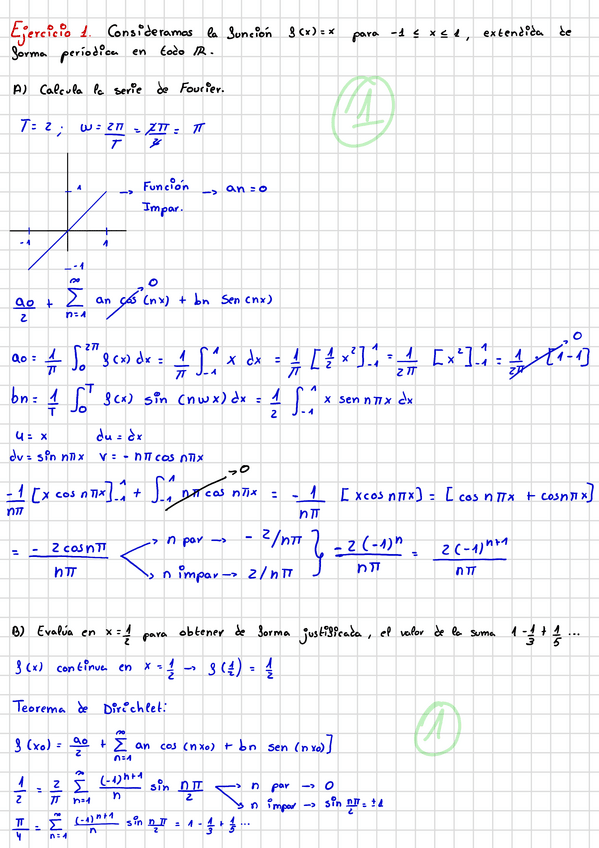 Ejercicio 1. Consideramos la función f(x)=x para -1 ≤ x ≤ 1, extendida de
forma periodica en todo ℝ.
A) Calcula la serie de Fourier.
1
T = 2 ; ω = 2π/T = 2π/2 = π
1 → Función → an = 0
Impar.
-1 1
-1
a0/2 + ∑_{n=1}^{∞} an cos (nx) + bn sen (nx)
0
a0 = 1/π ∫_0^{2π} f(x) dx = 1/π ∫_{-1}^{1} x dx = 1/π [1/2 x²]_{-1}^{1} = 1/2π [x²]_{-1}^{1} = 1/2π [1-1]
0
bn = 1/T ∫_0^T f(x) sin (nωx) dx = 1/2 ∫_{-1}^{1} x sen nπx dx
u = x du = dx
dv = sin nπx v = - nπ cos nπx
-1/nπ [x cos nπx]_{-1}^{1} + ∫_{-1}^{1} nπ cos nπx = -1/nπ [x cos nπx] = [cos nπx + cos nπx]
0
= - 2 cos nπ / nπ → n par → - 2/nπ } -2(-1)^n / nπ = 2(-1)^{n+1} / nπ
→ n impar → 2/nπ
B) Evalúa en x = 1/2 para obtener de forma justificada, el valor de la suma 1 - 1/3 + 1/5 ...
f(x) continua en x = 1/2 → f(1/2) = 1/2
Teorema de Dirichlet:
1
f(x0) = a0/2 + ∑_{n=1}^{∞} an cos (nx0) + bn sen (nx0)]
1/2 = 2/π ∑_{n=1}^{∞} (-1)^{n+1}/n sin nπ/2 → n par → 0
→ n impar → sin nπ/2 = ±1
π/4 = ∑_{n=1}^{∞} (-1)^{n+1}/n sin nπ/2 = 1 - 1/3 + 1/5 ...